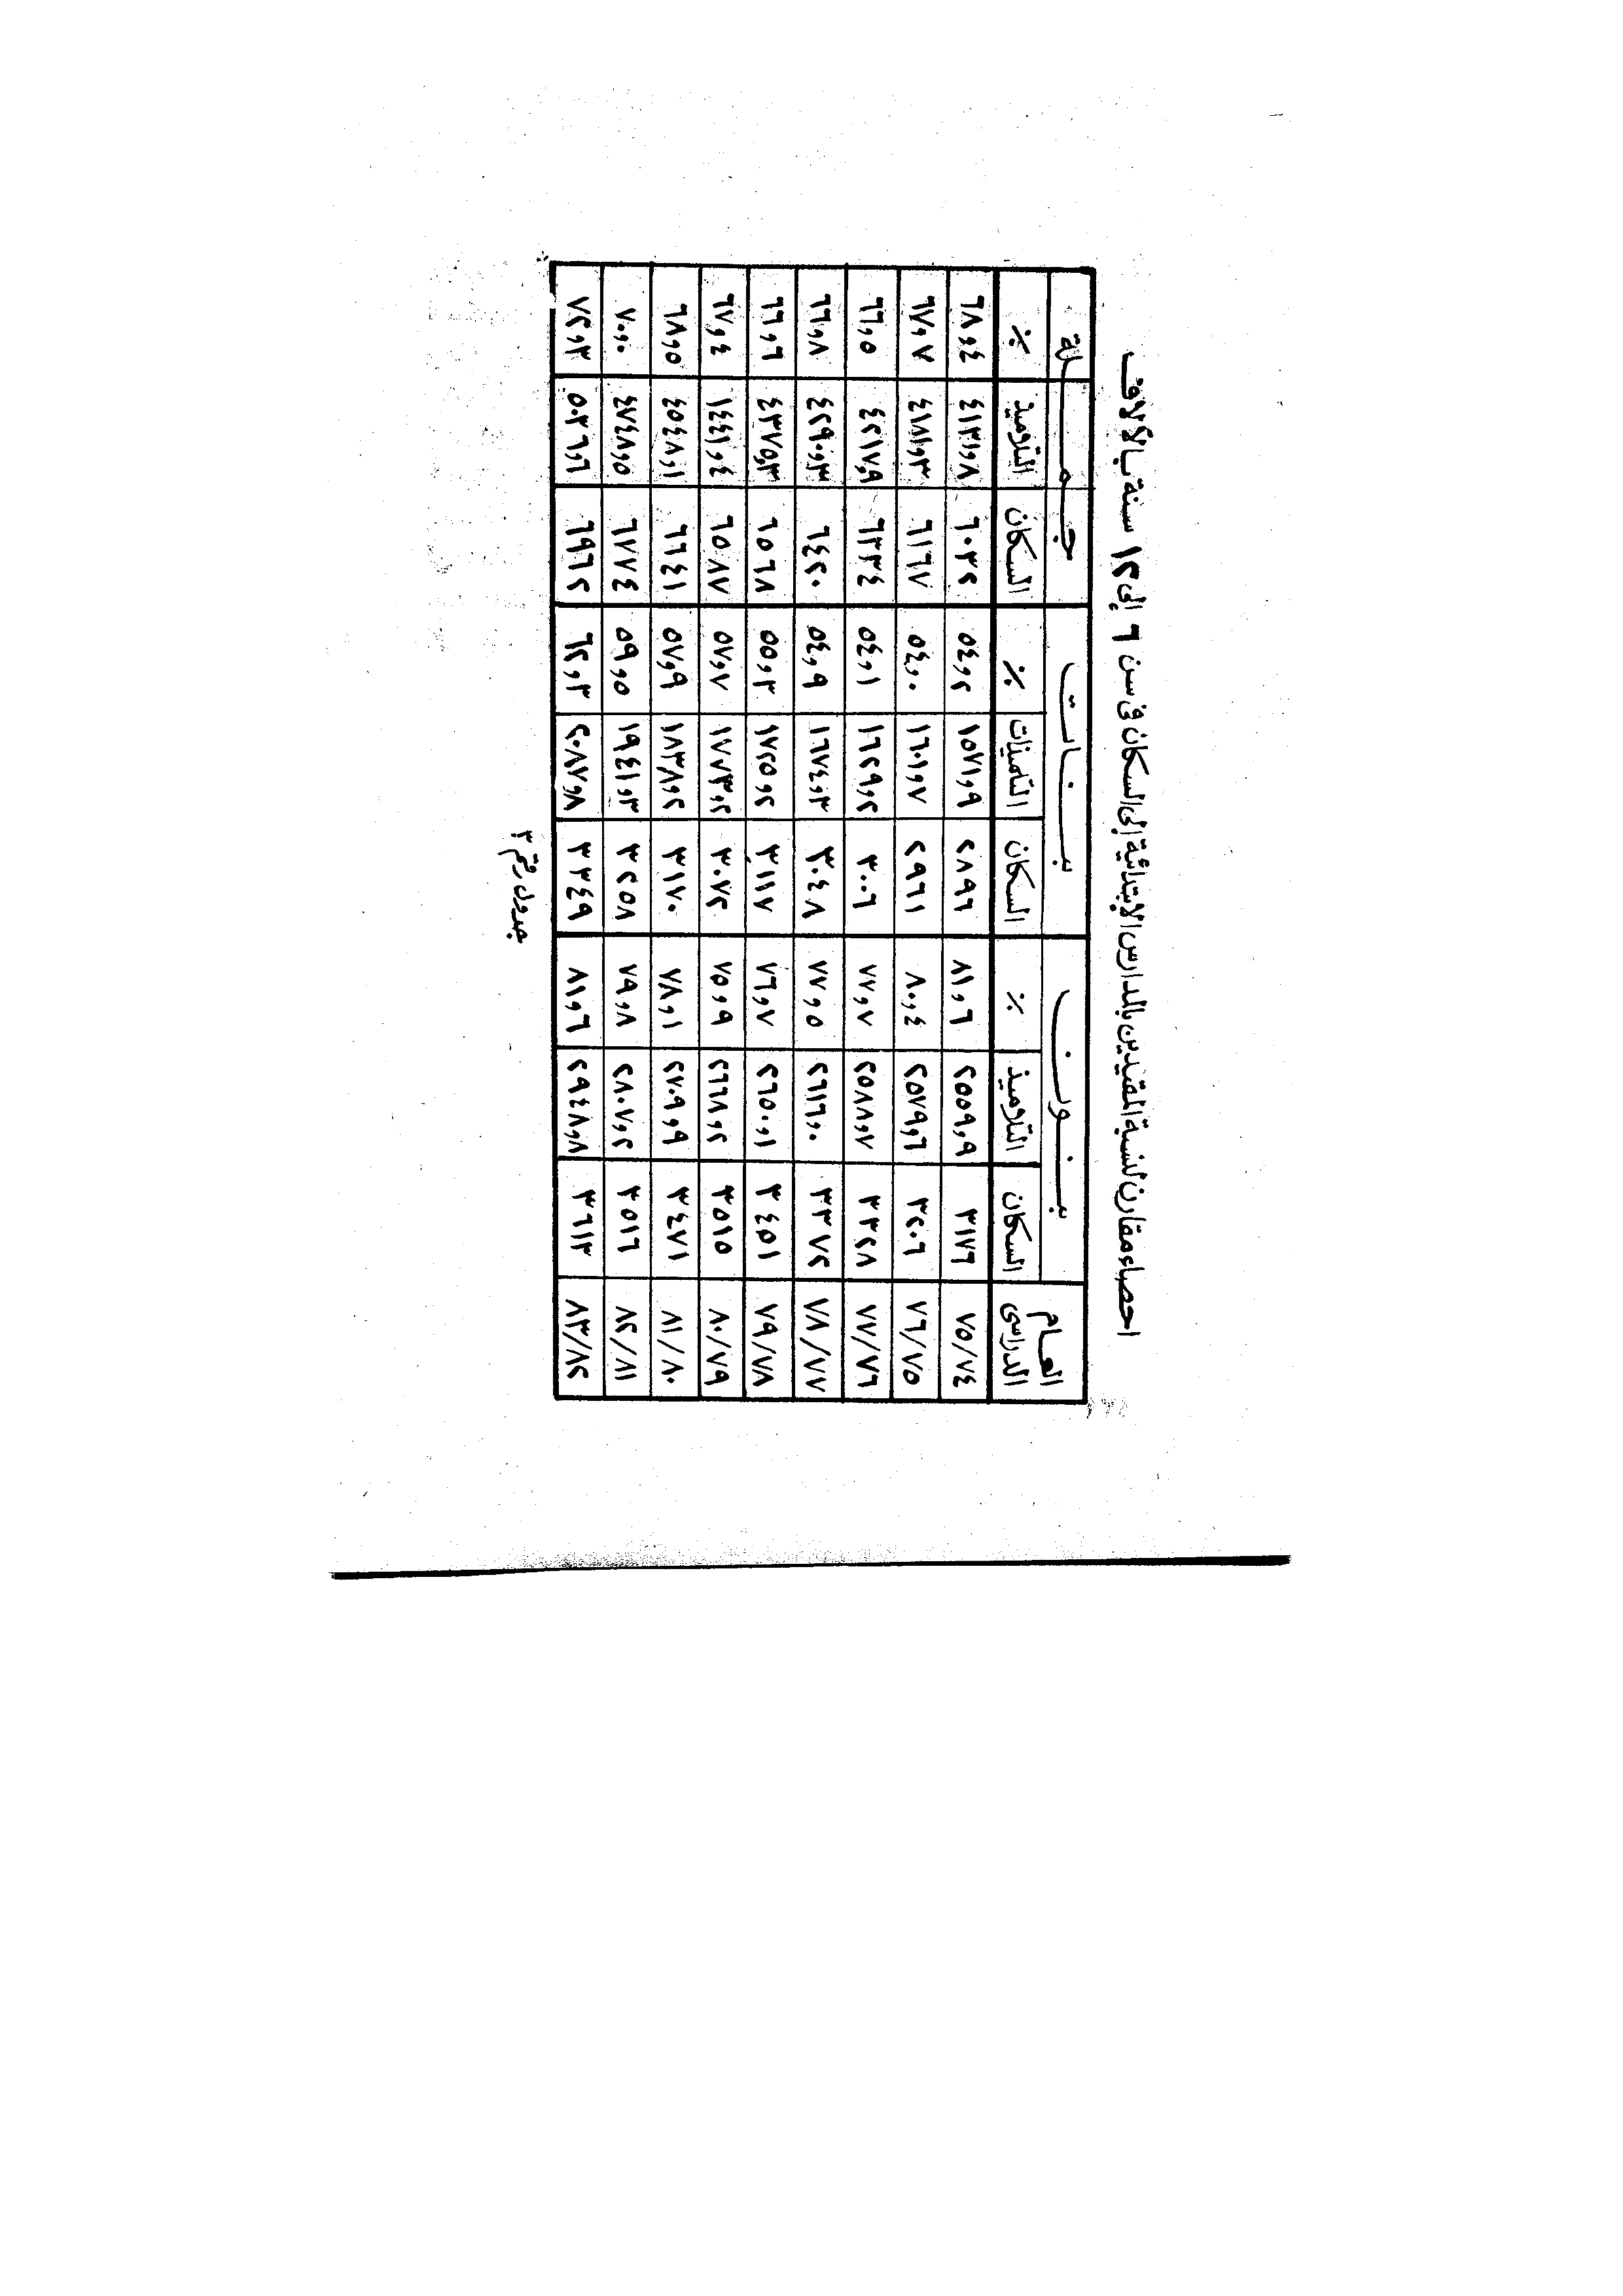 احصاء مقارن لنسبة المقيدين بالمدارس الابتدائية إلى السكان فى سن ٦ إلى ١٢ سنة بالألاف
العام الدراسى بنون بنات جملة
السكان التلاميذ ٪ السكان التلميذات ٪ السكان التلاميذ ٪
٧٥/٧٤ ٣١٧٦ ٢٥٥٩,٩ ٨١,٦ ٢٨٩٦ ١٥٧١,٩ ٥٤,٢ ٦٠٣٢ ٤١٣١,٨ ٦٨,٤
٧٦/٧٥ ٣٢٠٦ ٢٥٧٩,٦ ٨٠,٤ ٢٩٦١ ١٦٠١,٧ ٥٤,٠ ٦١٦٧ ٤١٨١,٣ ٦٧,٧
٧٧/٧٦ ٣٣٢٨ ٢٥٨٨,٧ ٧٧,٧ ٣٠٠٦ ١٦٢٩,٢ ٥٤,١ ٦٣٣٤ ٤٢١٧,٩ ٦٦,٥
٧٨/٧٧ ٣٣٧٢ ٢٦١٦,٠ ٧٧,٥ ٣٠٤٨ ١٦٧٤,٣ ٥٤,٩ ٦٤٢٠ ٤٢٩٠,٣ ٦٦,٨
٧٩/٧٨ ٣٤٥١ ٢٦٥٠,١ ٧٦,٧ ٣١١٧ ١٧٢٥,٢ ٥٥,٣ ٦٥٦٨ ٤٣٧٥,٣ ٦٦,٦
٨٠/٧٩ ٣٥١٥ ٢٦٦٨,٢ ٧٥,٩ ٣٠٧٢ ١٧٧٣,٢ ٥٧,٧ ٦٥٨٧ ١٤٤١,٤ ٦٧,٤
٨١/٨٠ ٣٤٧١ ٢٧٠٩,٩ ٧٨,١ ٣١٧٠ ١٨٣٨,٢ ٥٧,٩ ٦٦٤١ ٤٥٤٨,١ ٦٨,٥
٨٢/٨١ ٣٥١٦ ٢٨٠٧,٢ ٧٩,٨ ٣٢٥٨ ١٩٤١,٣ ٥٩,٥ ٦٧٧٤ ٤٧٤٨,٥ ٧٠,٠
٨٣/٨٢ ٣٦١٣ ٢٩٤٨,٨ ٨١,٦ ٣٣٤٩ ٢٠٨٧,٨ ٦٢,٣ ٦٩٦٢ ٥٠٣٦,٦ ٧٢,٣
جدول رقم ٣